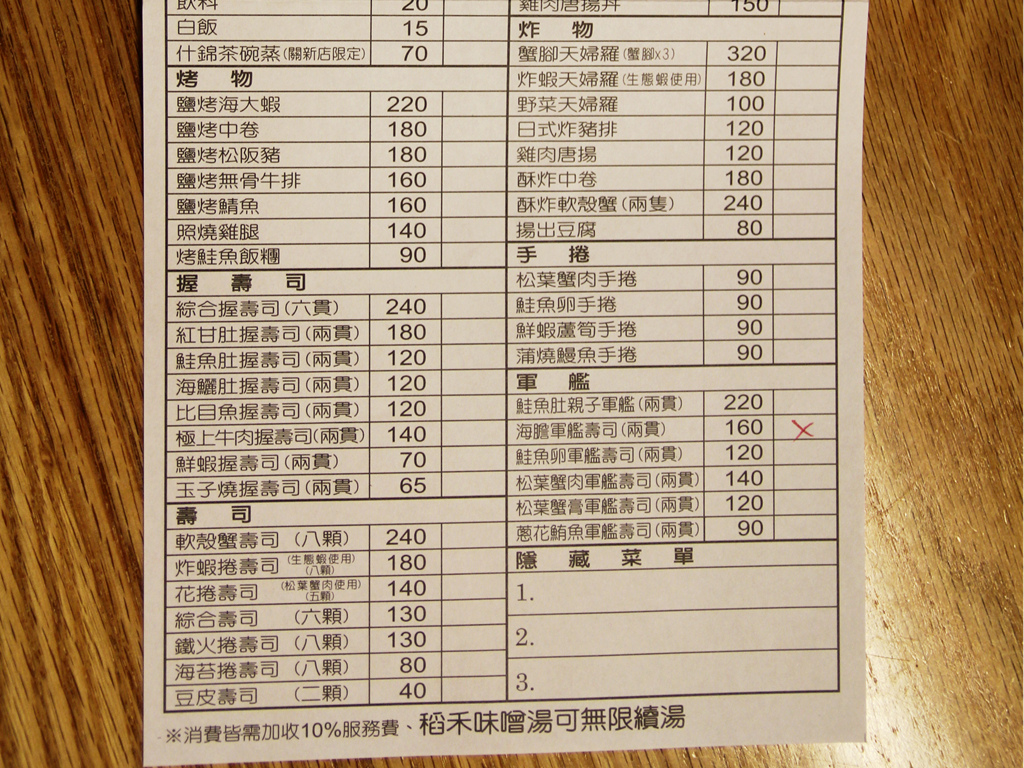 飲料 20
白飯 15
什錦茶碗蒸(關新店限定) 70
烤 物
鹽烤海大蝦 220
鹽烤中卷 180
鹽烤松阪豬 180
鹽烤無骨牛排 160
鹽烤鯖魚 160
照燒雞腿 140
烤鮭魚飯糰 90
握 壽 司
綜合握壽司(六貫) 240
紅甘肚握壽司(兩貫) 180
鮭魚肚握壽司(兩貫) 120
海鱺肚握壽司(兩貫) 120
比目魚握壽司(兩貫) 120
極上牛肉握壽司(兩貫) 140
鮮蝦握壽司(兩貫) 70
玉子燒握壽司(兩貫) 65
壽 司
軟殼蟹壽司 (八顆) 240
炸蝦捲壽司 (生態蝦使用)(八顆) 180
花捲壽司 (松葉蟹肉使用)(五顆) 140
綜合壽司 (六顆) 130
鐵火捲壽司 (八顆) 130
海苔捲壽司 (八顆) 80
豆皮壽司 (二顆) 40
雞肉唐揚丼 150
炸 物
蟹腳天婦羅(蟹腳x3) 320
炸蝦天婦羅(生態蝦使用) 180
野菜天婦羅 100
日式炸豬排 120
雞肉唐揚 120
酥炸中卷 180
酥炸軟殼蟹(兩隻) 240
揚出豆腐 80
手 捲
松葉蟹肉手捲 90
鮭魚卵手捲 90
鮮蝦蘆筍手捲 90
蒲燒鰻魚手捲 90
軍 艦
鮭魚肚親子軍艦(兩貫) 220
海膽軍艦壽司(兩貫) 160
鮭魚卵軍艦壽司(兩貫) 120
松葉蟹肉軍艦壽司(兩貫) 140
松葉蟹膏軍艦壽司(兩貫) 120
蔥花鮪魚軍艦壽司(兩貫) 90
隱 藏 菜 單
1.
2.
3.
※消費皆需加收10%服務費、稻禾味噌湯可無限續湯